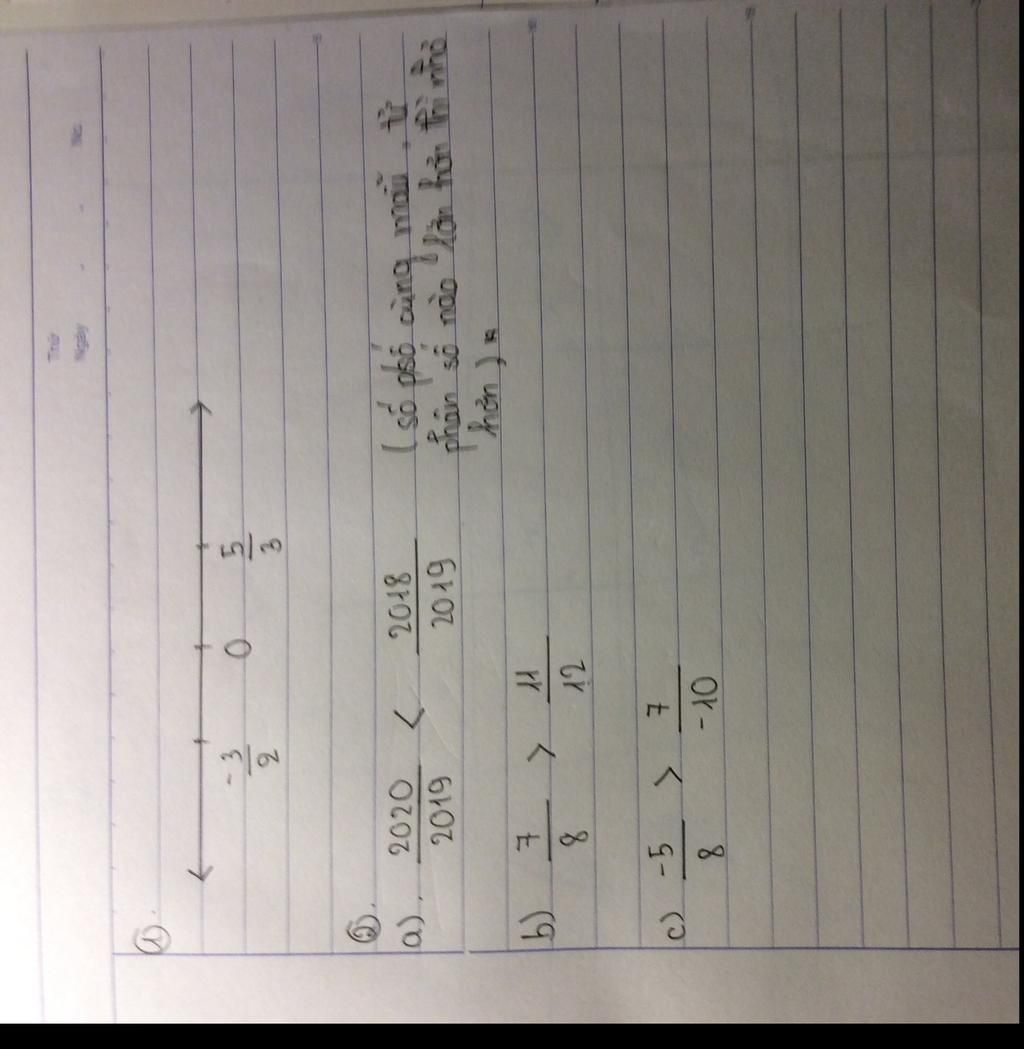 Thứ
Ngày . . No.
①.
-3/2 0 5/3
②.
a). 2020/2019 < 2018/2019 (số phsố cùng mẫu, tử
phân số nào lớn hơn thì nhỏ
hơn)
b) 7/8 > 11/12
c) -5/8 > 7/-10